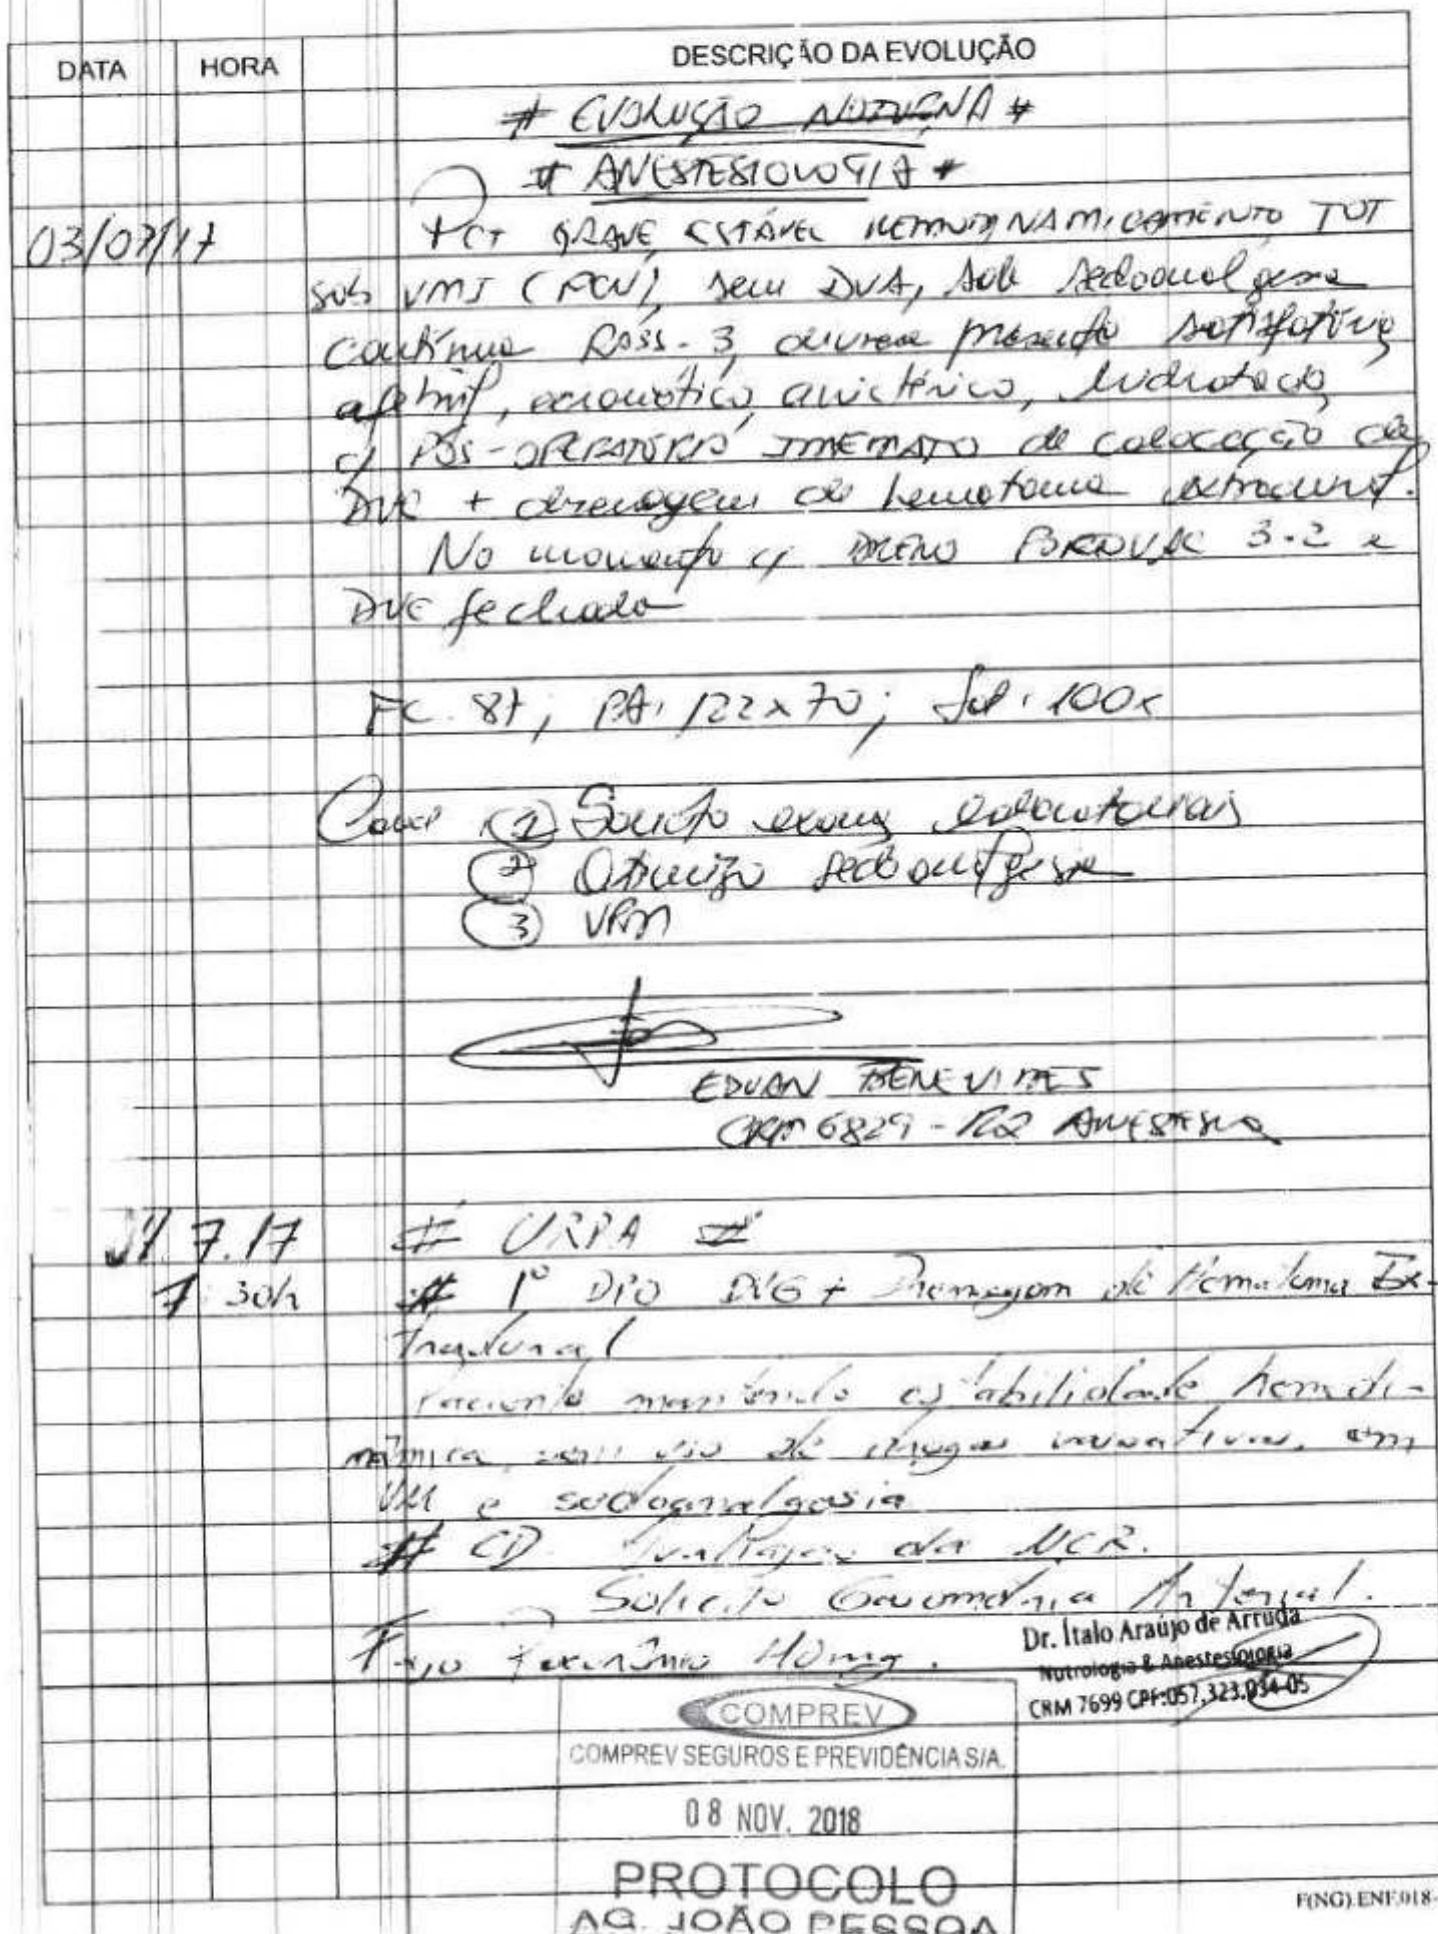 DATA HORA DESCRIÇÃO DA EVOLUÇÃO
# EVOLUÇÃO NOTURNA #
# ANESTESIOLOGIA #
03/07/17 Pct GRAVE, ESTÁVEL HEMODINAMICAMENTE TOT
sob VMI (PCV), sem DVA, sob sedoanalgesia
contínua Rass -3, diurese presente satisfatória
afebril, acianótico, anictérico, hidratado,
c/ PÓS-OPERATÓRIO IMEDIATO de colocação de
DVE + drenagem de hematoma extradural.
No momento c/ DRENO PORTOVAC 3.2 e
DVE fechada
FC: 87; PA: 122x70; Sat: 100%
Cond (1) Solicito exames laboratoriais
(2) Otimizo sedoanalgesia
(3) VPM
EDVAN BENEVIDES
CRM 6829 - R2 ANESTESIA
7.17 # URPA #
7:30h # 1º DPO DVE + Drenagem de Hematoma Ex-
tradural
Paciente mantendo estabilidade hemodi-
nâmica sem uso de drogas vasoativas, em
VM e sedoanalgesia
# CD. Avaliação da NCR.
Solicito Gasometria Arterial.
Faço 40mg.
Dr. Ítalo Araújo de Arruda
Nutrologia & Anestesiologia
CRM 7699 CPF:057.323.034-05
COMPREV
COMPREV SEGUROS E PREVIDÊNCIA S/A.
08 NOV. 2018
PROTOCOLO
AG. JOÃO PESSOA
F(NG).ENF.018-